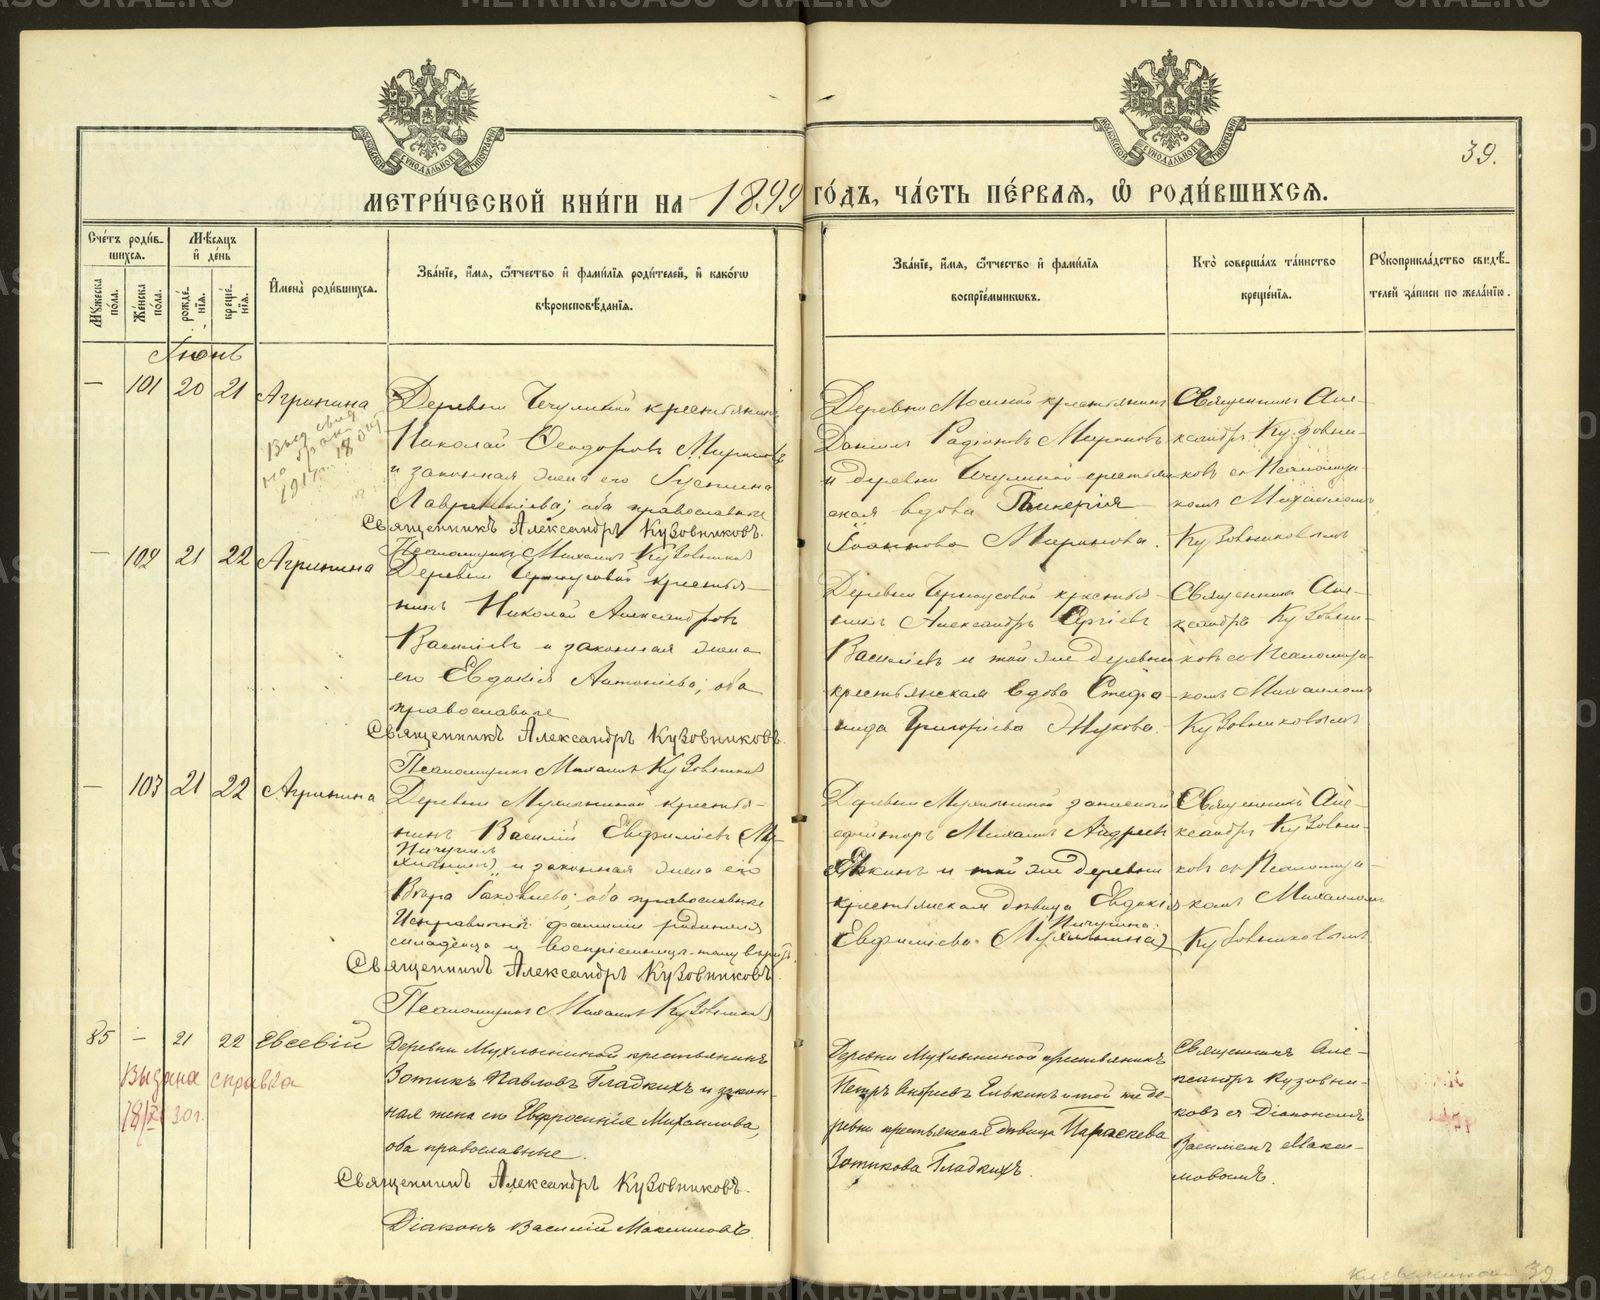 39.
МЕТРИ́ЧЕСКОЙ КНИ́ГИ НА 1899 ГО́ДЪ, ЧА́СТЬ ПЕ́РВАЯ, Ѿ РОДИ́ВШИХСЯ.
Сче́тъ роди́в-
шихся.
Му́жеска
по́ла.
Же́нска
по́ла.
Мѣ́сяцъ
и҆ де́нь
рожде́-
нїя.
креще́-
нїя.
И҆мена̀ роди́вшихся.
Зва́нїе, и҆́мя, ѻ҆́тчество и҆ фами́лїя роди́телей, и҆ како́гѡ
вѣроисповѣ́данїя.
Зва́нїе, и҆́мя, ѻ҆́тчество и҆ фами́лїя
воспрїе́мникѡвъ.
Кто̀ соверша́лъ та́инство
креще́нїя.
Рꙋкоприкла́дство свидѣ́-
телей за́писи по жела́нїю.
Іюнь
— 101 20 21 Агрипина
Деревни крестьянинъ
Николай Ѳеодоровъ Мироновъ
и законная жена его Іустина
оба православные
Священникъ Александръ Кузовниковъ.
Псаломщикъ Михаилъ Кузовниковъ
Деревни крестьянинъ
Даніилъ Родіоновъ Мироновъ
и деревни крестьян-
ская вдова Гликерія
Іоаннова Миронова.
Священникъ Але-
ксандръ Кузовни-
ковъ съ Псаломщи-
комъ Михаиломъ
Кузовниковымъ
— 102 21 22 Агрипина
Деревни крестья-
нинъ Николай Александровъ
Василіевъ и законная жена
его Евдокія Антоніева; оба
православные
Священникъ Александръ Кузовниковъ.
Псаломщикъ Михаилъ Кузовниковъ
Деревни крестья-
нинъ Александръ Сергіевъ
Василіевъ и той же деревни
крестьянская вдова Стефа-
нида Григоріева Жукова.
Священникъ Але-
ксандръ Кузовни-
ковъ съ Псаломщи-
комъ Михаиломъ
Кузовниковымъ
— 103 21 22 Агрипина
Деревни Мухлыниной крестья-
нинъ Василій Евфиміевъ (Му-
Пичугинъ
хлынинъ) и законная жена его
Вѣра Іаковлева; оба православные
фамиліи родителя
младенца и воспріемницы
Священникъ Александръ Кузовниковъ.
Псаломщикъ Михаилъ Кузовниковъ
Деревни Мухлыниной запасной
ефрейторъ Михаилъ Андреевъ
Елькинъ и той же деревни
крестьянская дѣвица Евдокія
Пичугина.
Евфиміева (Мухлынина)
Священникъ Але-
ксандръ Кузовни-
ковъ съ Псаломщи-
комъ Михаиломъ
Кузовниковымъ
85 — 21 22 Евсевій
Выдана справка
Деревни Мухлыниной крестьянинъ
Зотикъ Павловъ Гладкихъ и закон-
ная жена его Евфросинія Михаилова,
оба православные.
Священникъ Александръ Кузовниковъ.
Діаконъ Василій Максимовъ.
Деревни Мухлыниной крестьянинъ
Петръ Андреевъ Елькинъ и той же де-
ревни крестьянская дѣвица Параскева
Зотикова Гладкихъ.
Священникъ Але-
ксандръ Кузовни-
ковъ съ Діакономъ
Василіемъ Макси-
мовымъ.
39
METRIKI.GASO-URAL.RU